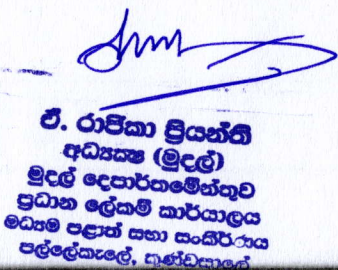 ඒ. රාජිකා ප්‍රියන්ති
අධ්‍යක්ෂ (මුදල්)
මුදල් දෙපාර්තමේන්තුව
ප්‍රධාන ලේකම් කාර්යාලය
මධ්‍යම පළාත් සභා සංකීර්ණය
පල්ලේකැලේ, කුණ්ඩසාලේ